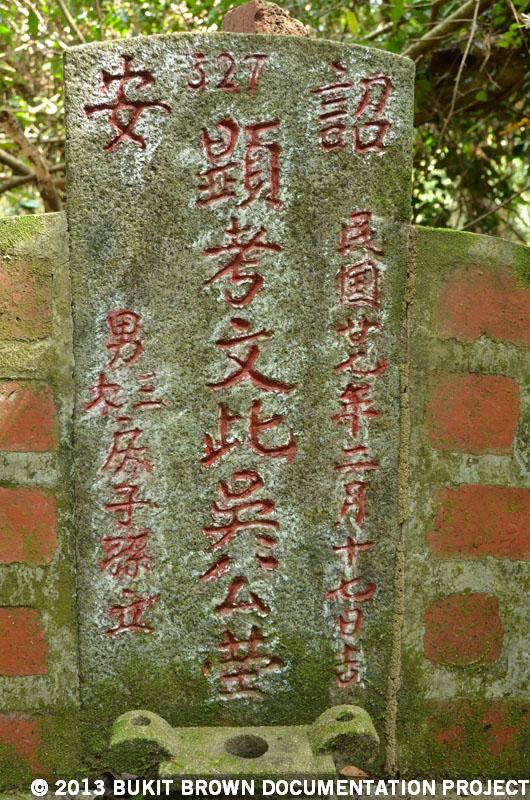 詔安
327
民國廿九年二月十七日吉
顯考文此吳公塋
男三大房子孫立
© 2013 BUKIT BROWN DOCUMENTATION PROJECT